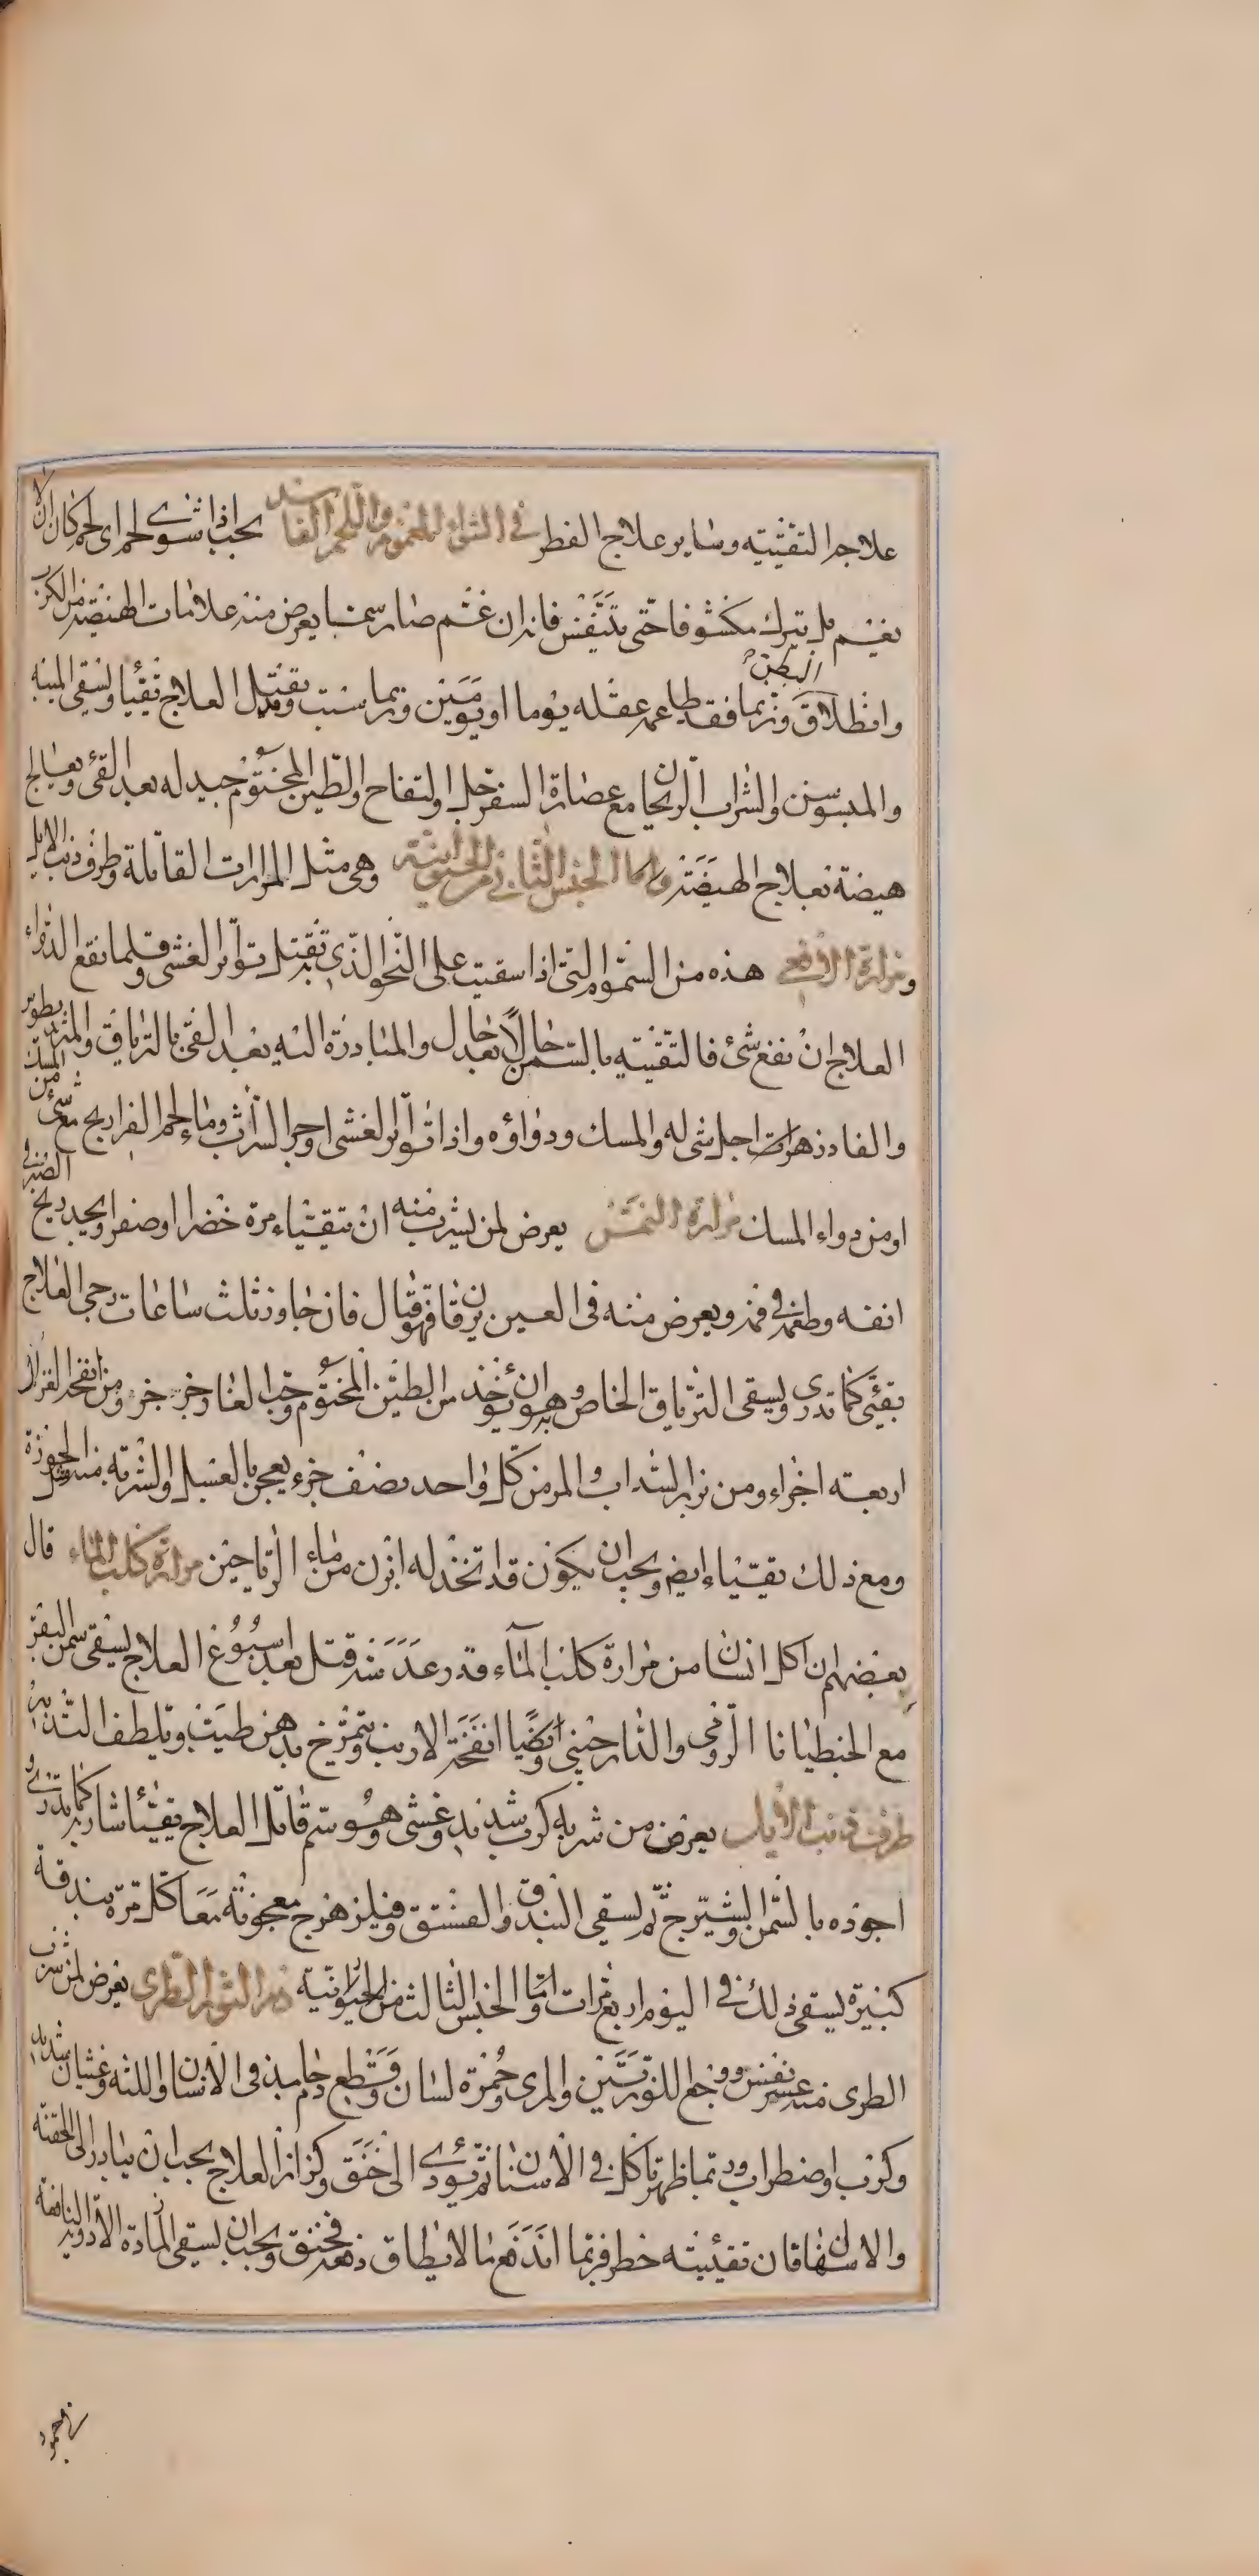 علاجه التقيئة وساير علاج الفطر في الشواء المغموم واللحم الفاسد يجب اذا شوى لحم اى لحم كان ان لا
يغم بل يترك مكشوفا حتى يتنفس فانه ان غم صار سما يعرض منه علامات الهيضة من الكرب
وانطلاق البطن وربما فقد طاعمه عقله يوما او يومين وربما سبت وقتل العلاج تقيا ويسقى الميبه
والميسوسن والشراب الريحانى مع عصارة السفرجل والتفاح والطين المختوم جيد له بعد القئ ويعالج
هيضة بعلاج الهيضة واما الجنس الثانى من الحيوانية وهى مثل المرارات القاتلة وطرف ذنب الايل
ومرارة الافعى هذه من السموم التى اذا سقيت على النحو الذى تقتل به تواتر الغشى وقلما نفع الدواء
العلاج ان نفع شئ فالتقيئة بالسمن حالا بعد حال والمبادرة اليه بعد القئ بالترياق والمثروديطوس
والفادزهرات اجل شى له والمسك ودواؤه واذا تواتر الغشى اوجر الشراب وماء لحم الفراريج مع شئ من المسك
او من دواء المسك مرارة النمر يعرض لمن يشرب منه ان يتقياء مرة خضرا او صفرا ويجد ريح الصبر فى
انفه وطعمه فى فمه ويعرض منه فى العين يرقان فهو قتال فان جاوز ثلث ساعات رجى العلاج
يقئ كما تدرى ويسقى الترياق الخاص به وهو ان يؤخذ من الطين المختوم وحب الغار جزء جزء ومن انفحة الغزال
اربعة اجزاء ومن بزر السداب والمر من كل واحد نصف جزء يعجن بالعسل والشربة منه مثل الجوزة
ومع ذلك يتقياء ايضا ويجب ان يكون قد اتخذ له ابزن من ماء الرياحين مرارة كلب الماء قال
بعضهم ان اكل انسان من مرارة كلب الماء قدر عدسة قتل بعد اسبوع العلاج يسقى سمن البقر
مع الجنطيانا الرومى والدارصينى وايضا انفحة الارنب ويتمرخ بدهن طيب ويلطف التدبير
طرف ذنب الايل يعرض من شربه كرب شديد وغشى وهو سم قاتل العلاج تقيئا شاربه كما تدرى
اجوده بالسمن والشيرج ثم يسقى البندق والفستق وفيلزهرج معجونة معا كل مرة بندقة
كبيرة يسقى ذلك فى اليوم اربع مرات اما الجنس الثالث من الحيوانية دم الثور الطرى يعرض لمن شرب
الطرى منه عسر نفس ووجع اللوزتين والمرى وحمرة لسان وقطع دم جامد فى الاسنان واللثه وغشيان شديد
وكرب واضطراب وربما ظهر تاكل فى الاسنان ثم يؤدى الى خنق وكزاز العلاج يجب ان يبادر الى الحقنه
والاسهال فان تقيئته خطر فربما اندفع مالا يطاق دفعه فخنق ويجب ان يسقى المادة الادوية النافعة